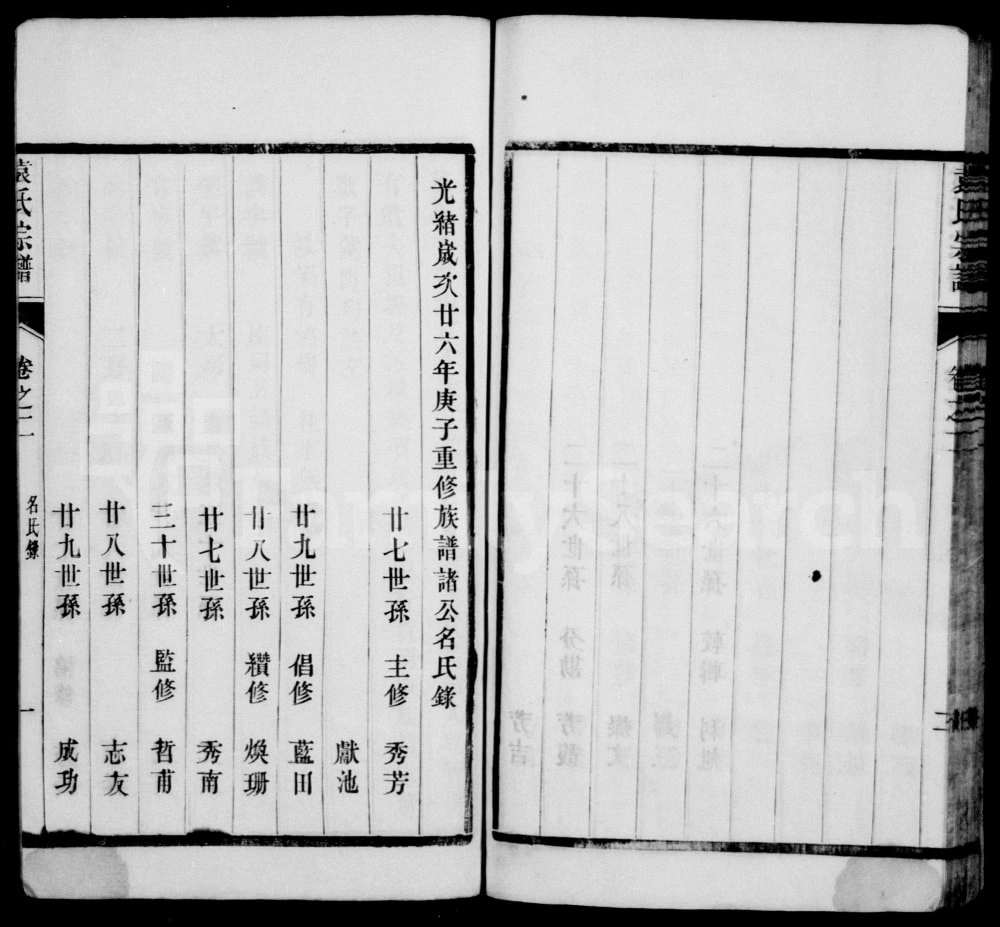 光緒歲次廿六年庚子重修族譜諸公名氏錄
廿七世孫 主修 秀芳
獻池
廿九世孫 倡修 藍田
廿八世孫 纘修 煥珊
廿七世孫 秀南
三十世孫 監修 哲甫
廿八世孫 志友
廿九世孫 成功
袁氏宗譜 卷之二 名氏錄 一